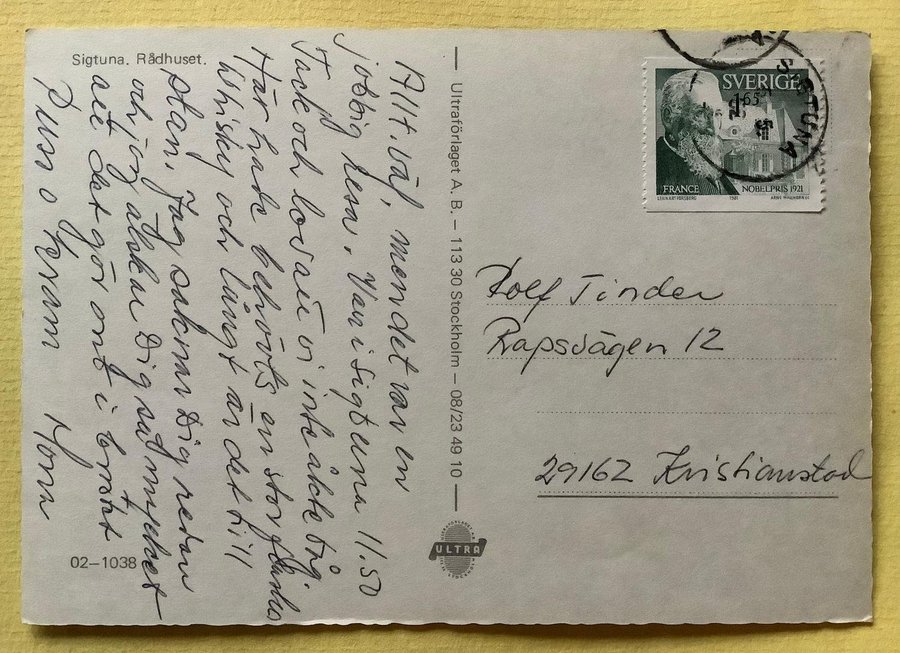 Sigtuna. Rådhuset.
Allt väl, men det var en
jobbig resa. Var i Sigtuna 11.50
Tack och lov att vi inte åkte tåg.
Här hade behövts en stor flaska
Whisky och långt är det till
stan. Jag saknar Dig redan
och jag älskar Dig så mycket
att det gör ont i
Puss o Kram Mona
02–1038
Ultraförlaget A. B. – 113 30 Stockholm – 08/23 49 10
ULTRA
SVERIGE
165
FRANCE NOBELPRIS 1921
LENNART FORSBERG 1981 ARNE WALLHORN SC
SIGTUNA
Rolf Tinder
Rapsvägen 12
29162 Kristianstad